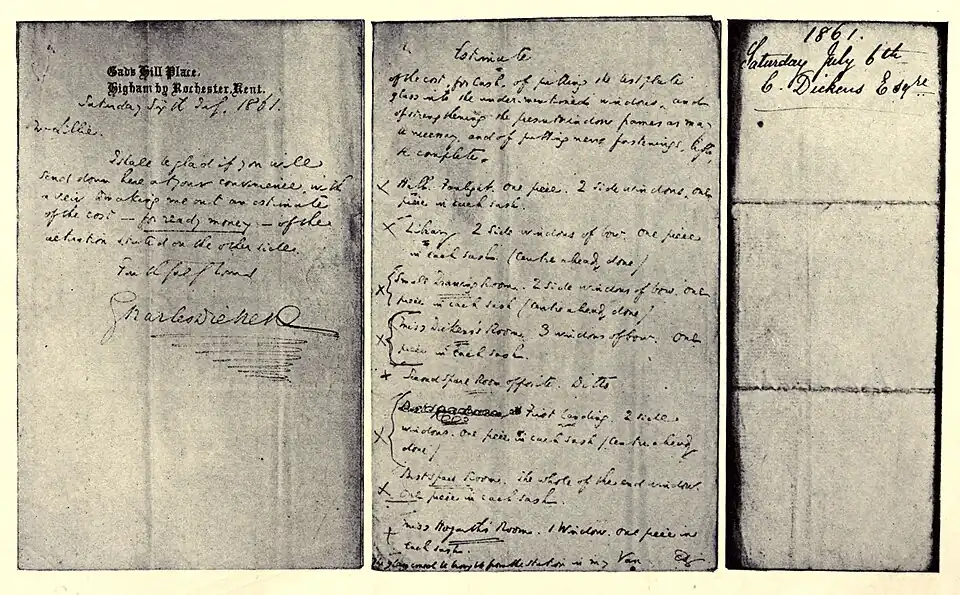 Gads Hill Place.
Higham by Rochester, Kent.
Saturday July 1861.
I shall be glad if you will
send down here at your convenience, with
a view making me out an estimate
of the cost — for ready money — of the
alteration stated on the other side.
Faithfully Yours
Charles Dickens
Estimate
of the cost, for Cash, of putting the best plate
glass into the undermentioned windows, and
of strengthening the present window frames as may
be necessary, and of putting new fastenings,
complete.
X Hall. Fanlight. One piece. 2 side windows. One
piece in each sash.
X Library 2 Side windows of bow. One piece
in each sash. (Centre already done)
X Small Drawing Room. 2 side windows of bow. One
piece in each sash (Centre already done)
X Miss Dickens's Room. 3 windows of bow. One
piece in each sash.
X Second Spare Room opposite. Ditto
X First Landing. 2 side
windows. One piece in each sash (Centre already
done)
X Best Spare Room. The whole of the end window.
One piece in each sash.
X Miss Hogarth's Room. 1 Window. One piece in
each sash.
The glass to be brought from the Station in my Van
1861.
Saturday July 6th
C. Dickens Esqre